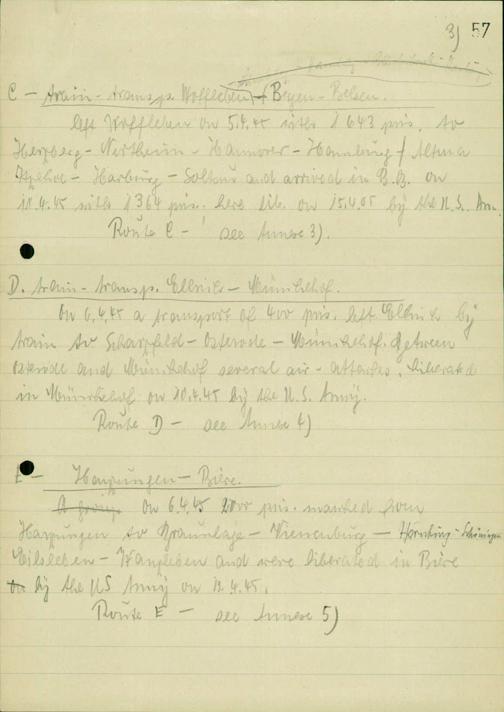 3) 57
C - train-transp. Woffleben - Bergen-Belsen.
left Woffleben on 5.4.45 with 1643 pris. to
Herzberg - Northeim - Hannover - Hamburg / Altona
Itzehoe - Harburg - Soltau and arrived in B.B. on
11.4.45 with 1364 pris. here lib. on 15.4.45 by the
Route C - see Annexe 3).
D. train-transp. Ellrich - Münchehof.
On 6.4.45 a transport of 400 pris. left Ellrich by
train to Scharzfeld - Osterode - Münchehof. Between
Osterode and Münchehof several air-attackes. Liberated
in Münchehof on 10.4.45 by the U.S. Army.
Route D - see Annexe 4)
E - Harzungen - Biere.
On 6.4.45 pris. marched from
Harzungen to Braunlage - Vienenburg - Hornburg - Schöningen
Eilsleben - Wanzleben and were liberated in Biere
by the US Army on 12.4.45.
Route E - see Annexe 5)